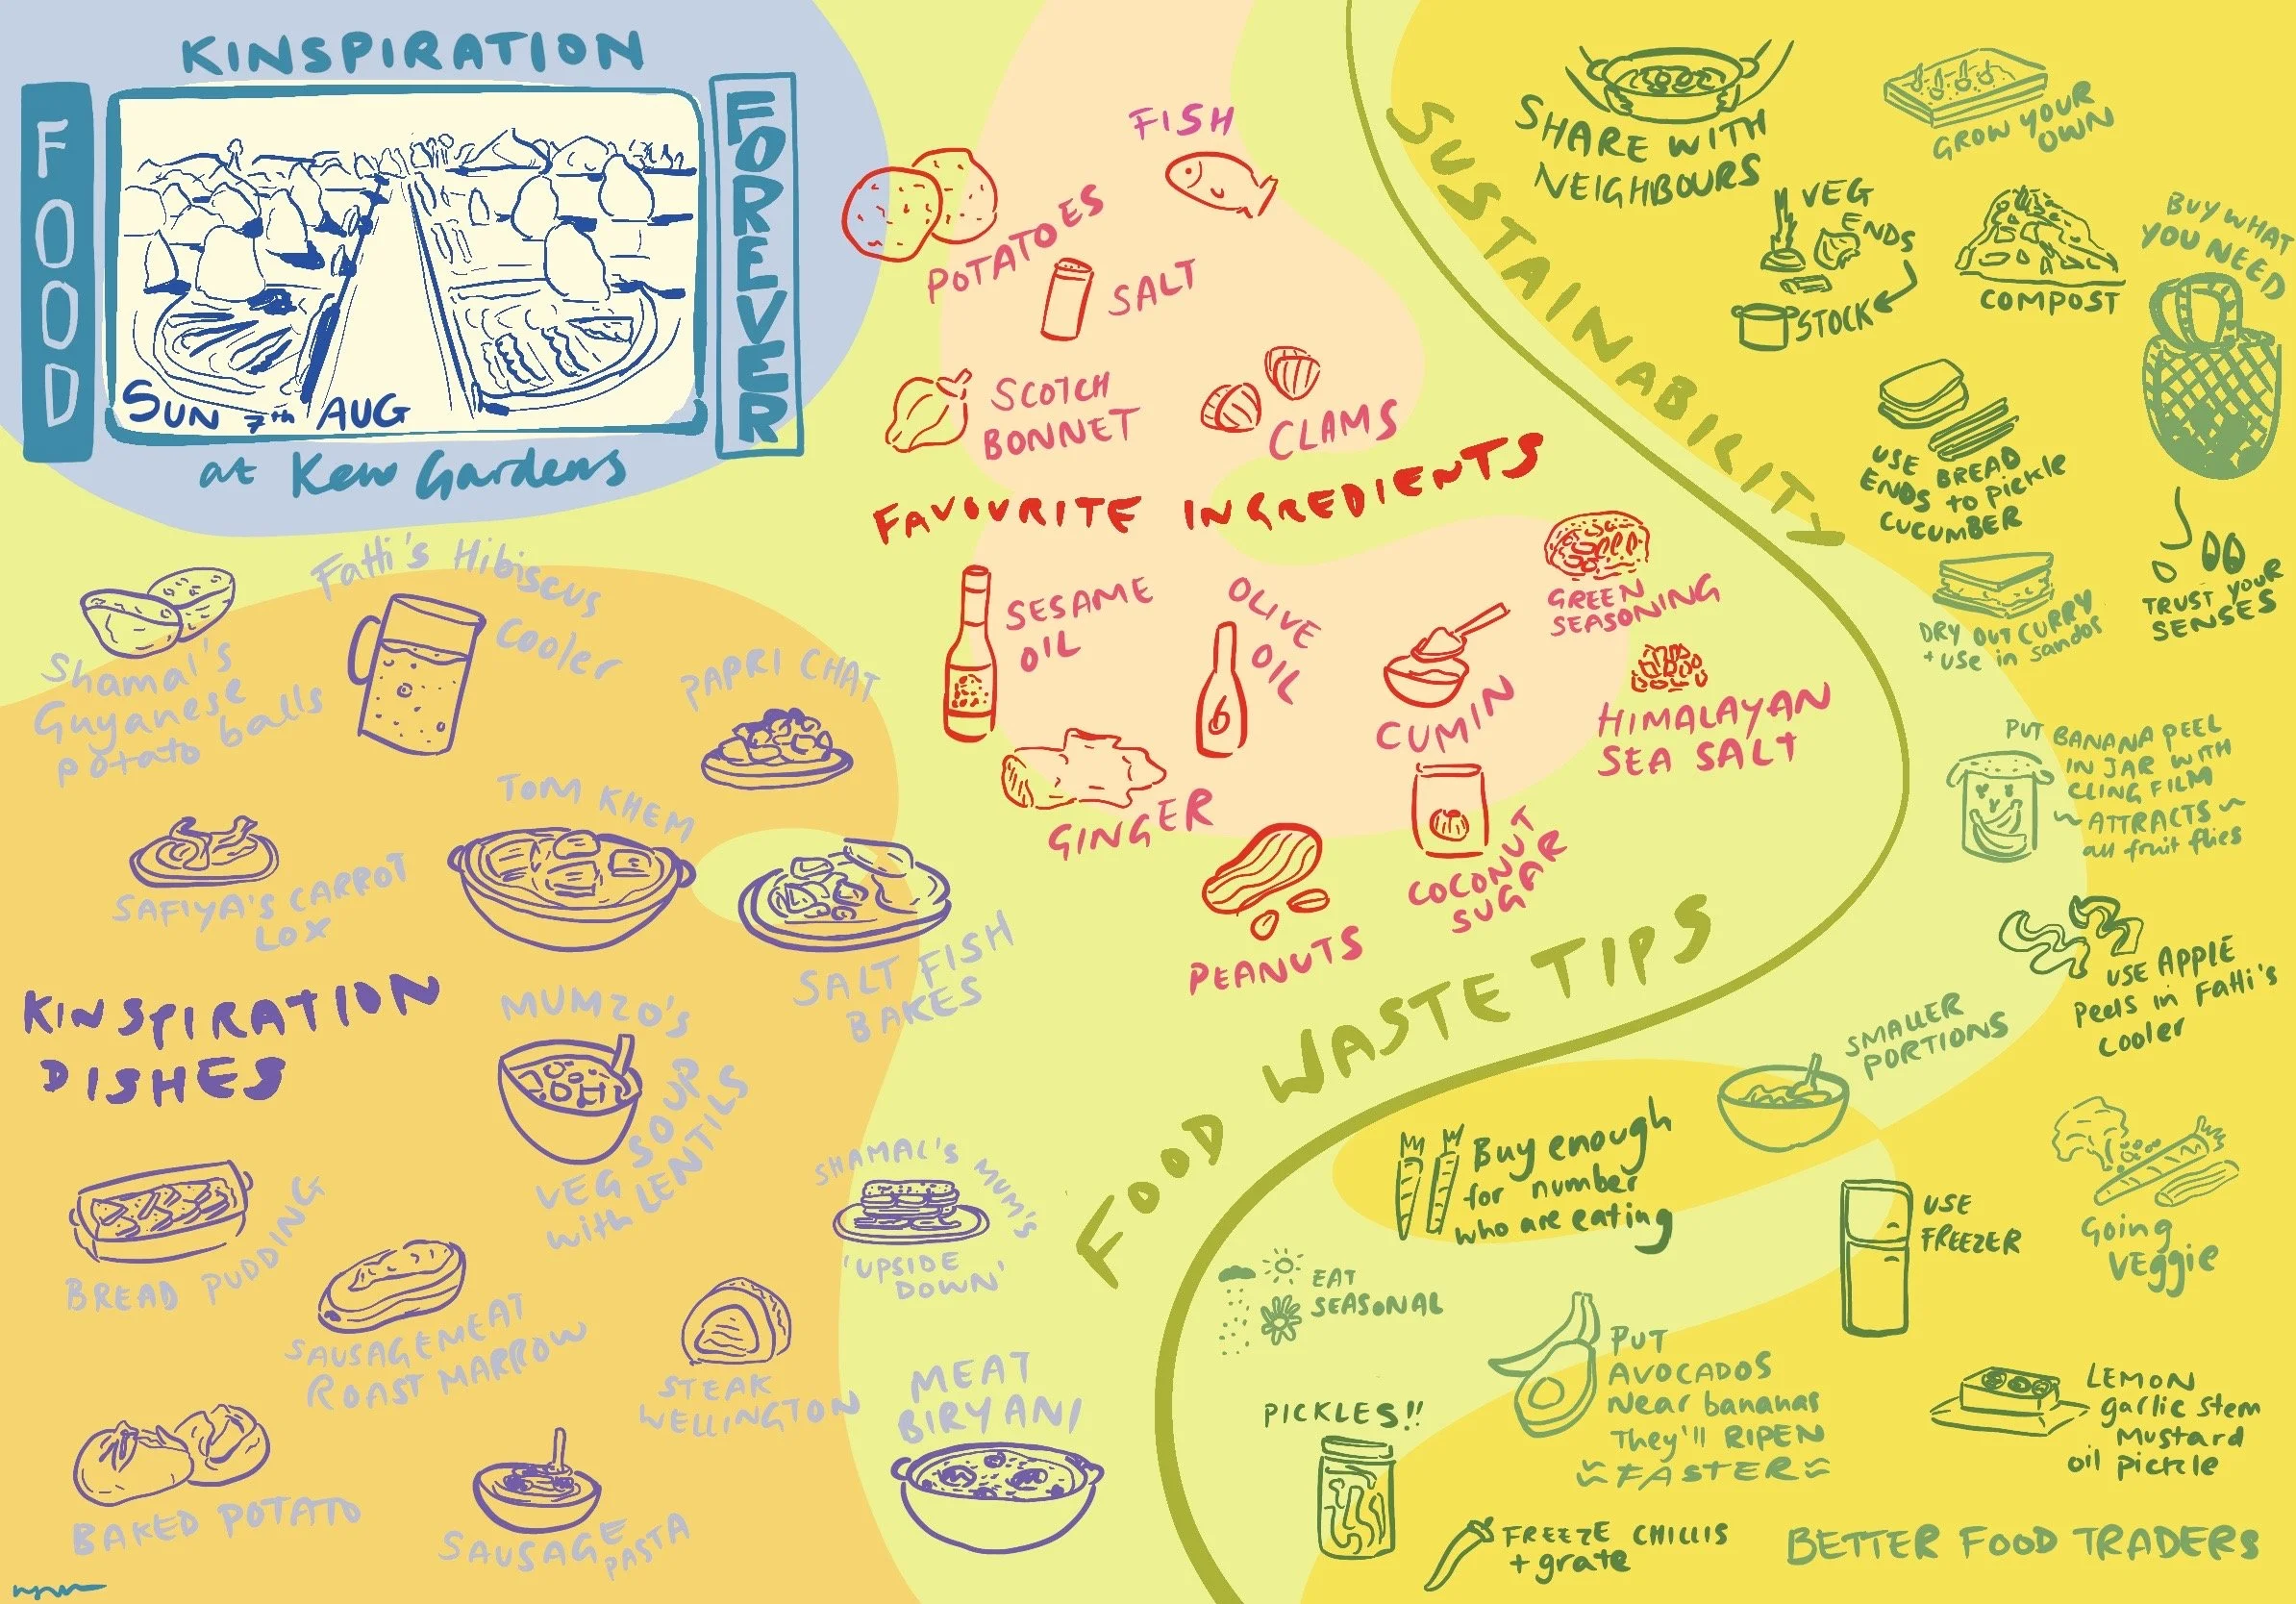 KINSPIRATION
FOOD
FOREVER
SUN 7th AUG
at Kew Gardens
FISH
POTATOES
SALT
SCOTCH
BONNET
CLAMS
FAVOURITE INGREDIENTS
SESAME
OIL
OLIVE
OIL
CUMIN
GREEN
SEASONING
HIMALAYAN
SEA SALT
GINGER
COCONUT
SUGAR
PEANUTS
Shamal's
Guyanese
potato balls
Fatti's Hibiscus
Cooler
PAPRI CHAT
TOM KHEM
SAFIYA'S CARROT
LOX
SALT FISH
BAKES
KINSPIRATION
DISHES
MUMZO'S
VEG SOUP
with LENTILS
BREAD PUDDING
SAUSAGEMEAT
ROAST MARROW
SHAMAL'S MUM'S
'UPSIDE
DOWN'
STEAK
WELLINGTON
MEAT
BIRYANI
BAKED POTATO
SAUSAGE
PASTA
SUSTAINABILITY
SHARE WITH
NEIGHBOURS
GROW YOUR
OWN
VEG
ENDS
STOCK
COMPOST
BUY WHAT
YOU NEED
USE BREAD
ENDS to pickle
CUCUMBER
TRUST YOUR
SENSES
DRY OUT CURRY
+ USE in sandos
PUT BANANA PEEL
IN JAR WITH
CLING FILM
~ ATTRACTS ~
all fruit flies
USE APPLE
Peels in Fatti's
cooler
FOOD WASTE TIPS
SMALLER
PORTIONS
Buy enough
for number
who are eating
USE
FREEZER
Going
VEggie
EAT
SEASONAL
PUT
AVOCADOS
Near bananas
They'll RIPEN
≈ FASTER ≈
PICKLES!!
LEMON
garlic stem
Mustard
oil pickle
FREEZE CHILLIS
+ grate
BETTER FOOD TRADERS